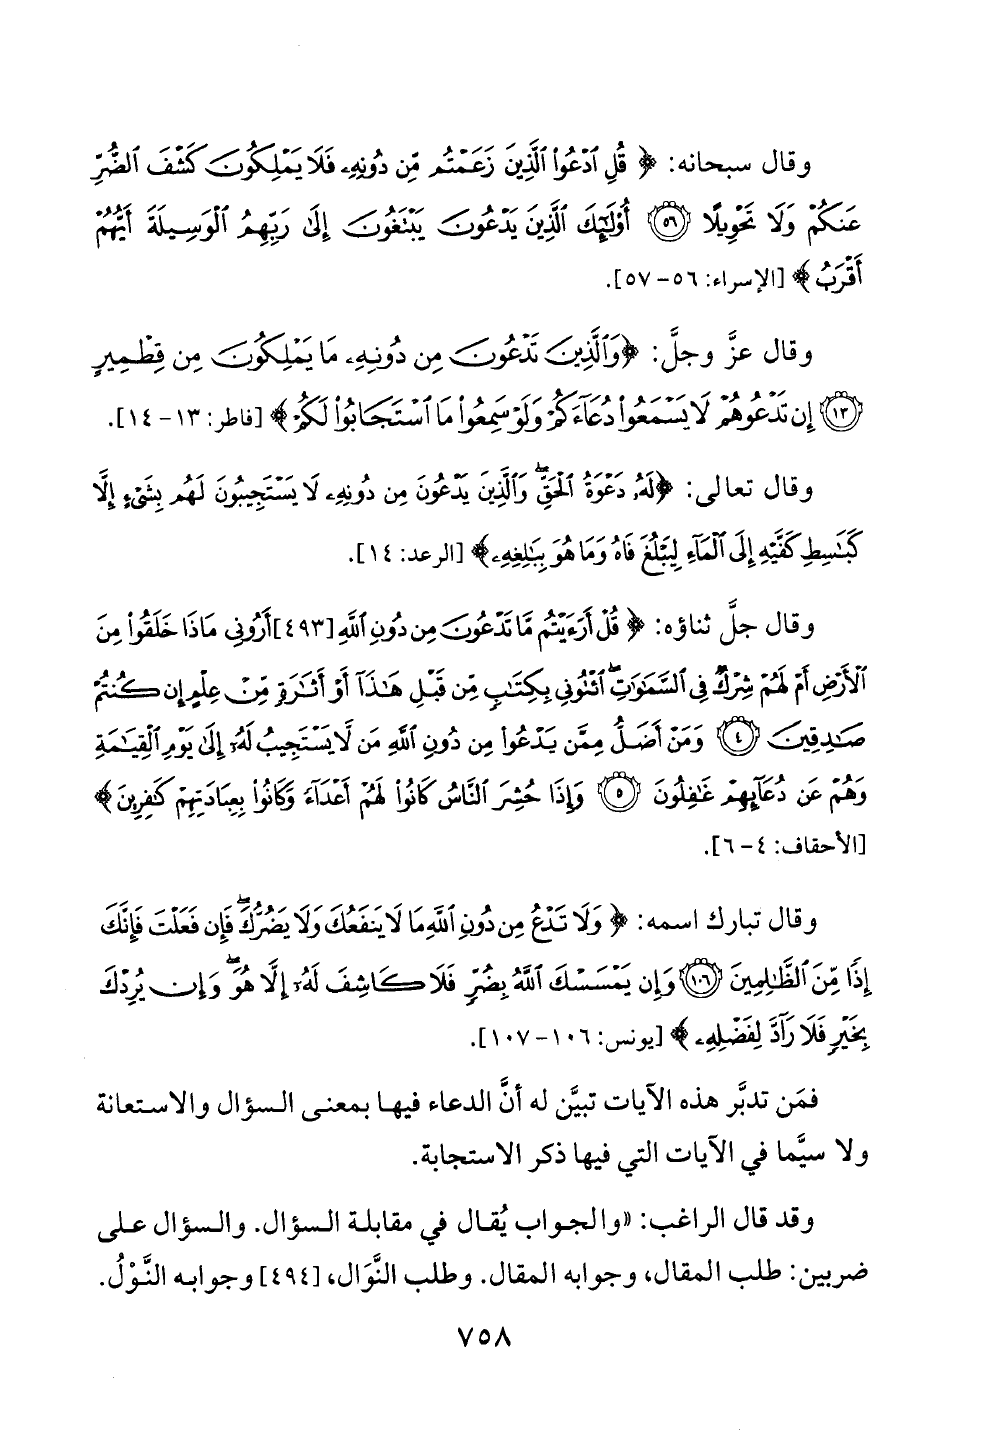 وقال سبحانه: ﴿ قُلِ ٱدْعُوا۟ ٱلَّذِينَ زَعَمْتُم مِّن دُونِهِۦ فَلَا يَمْلِكُونَ كَشْفَ ٱلضُّرِّ
عَنكُمْ وَلَا تَحْوِيلًا ٥٦ أُو۟لَـٰٓئِكَ ٱلَّذِينَ يَدْعُونَ يَبْتَغُونَ إِلَىٰ رَبِّهِمُ ٱلْوَسِيلَةَ أَيُّهُمْ
أَقْرَبُ ﴾ [الإسراء: ٥٦-٥٧].
وقال عزَّ وجلَّ: ﴿وَٱلَّذِينَ تَدْعُونَ مِن دُونِهِۦ مَا يَمْلِكُونَ مِن قِطْمِيرٍ
١٣ إِن تَدْعُوهُمْ لَا يَسْمَعُوا۟ دُعَآءَكُمْ وَلَوْ سَمِعُوا۟ مَا ٱسْتَجَابُوا۟ لَكُمْ ﴾ [فاطر: ١٣-١٤].
وقال تعالى: ﴿لَهُۥ دَعْوَةُ ٱلْحَقِّ ۖ وَٱلَّذِينَ يَدْعُونَ مِن دُونِهِۦ لَا يَسْتَجِيبُونَ لَهُم بِشَىْءٍ إِلَّا
كَبَـٰسِطِ كَفَّيْهِ إِلَى ٱلْمَآءِ لِيَبْلُغَ فَاهُ وَمَا هُوَ بِبَـٰلِغِهِۦ ﴾ [الرعد: ١٤].
وقال جلَّ ثناؤه: ﴿ قُلْ أَرَءَيْتُم مَّا تَدْعُونَ مِن دُونِ ٱللَّهِ [٤٩٣] أَرُونِى مَاذَا خَلَقُوا۟ مِنَ
ٱلْأَرْضِ أَمْ لَهُمْ شِرْكٌ فِى ٱلسَّمَـٰوَٰتِ ۖ ٱئْتُونِى بِكِتَـٰبٍ مِّن قَبْلِ هَـٰذَآ أَوْ أَثَـٰرَةٍ مِّنْ عِلْمٍ إِن كُنتُمْ
صَـٰدِقِينَ ٤ وَمَنْ أَضَلُّ مِمَّن يَدْعُوا۟ مِن دُونِ ٱللَّهِ مَن لَّا يَسْتَجِيبُ لَهُۥٓ إِلَىٰ يَوْمِ ٱلْقِيَـٰمَةِ
وَهُمْ عَن دُعَآئِهِمْ غَـٰفِلُونَ ٥ وَإِذَا حُشِرَ ٱلنَّاسُ كَانُوا۟ لَهُمْ أَعْدَآءً وَكَانُوا۟ بِعِبَادَتِهِمْ كَـٰفِرِينَ ﴾
[الأحقاف: ٤-٦].
وقال تبارك اسمه: ﴿ وَلَا تَدْعُ مِن دُونِ ٱللَّهِ مَا لَا يَنفَعُكَ وَلَا يَضُرُّكَ ۖ فَإِن فَعَلْتَ فَإِنَّكَ
إِذًا مِّنَ ٱلظَّـٰلِمِينَ ١٠٦ وَإِن يَمْسَسْكَ ٱللَّهُ بِضُرٍّ فَلَا كَاشِفَ لَهُۥٓ إِلَّا هُوَ ۖ وَإِن يُرِدْكَ
بِخَيْرٍ فَلَا رَآدَّ لِفَضْلِهِۦ ﴾ [يونس: ١٠٦-١٠٧].
فمَن تدبَّر هذه الآيات تبيَّن له أنَّ الدعاء فيها بمعنى السؤال والاستعانة
ولا سيَّما في الآيات التي فيها ذكر الاستجابة.
وقد قال الراغب: «والجواب يُقال في مقابلة السؤال. والسؤال على
ضربين: طلب المقال، وجوابه المقال. وطلب النَّوَال، [٤٩٤] وجوابه النَّوْلُ.
٧٥٨